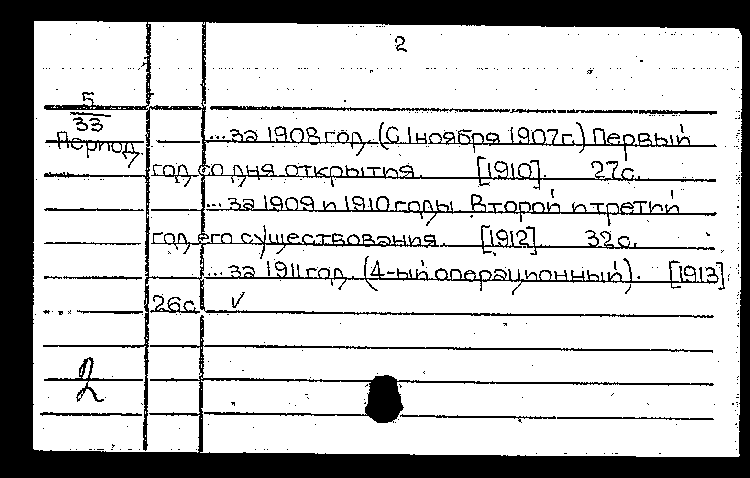 2
5
33
Период
... за 1908 год. (С 1 ноября 1907 г.) Первый
год со дня открытия. [1910]. 27 с.
... за 1909 и 1910 годы. Второй и третий
год его существования. [1912]. 32 с.
... за 1911 год. (4-ый операционный). [1913]
26 с. ✓
2